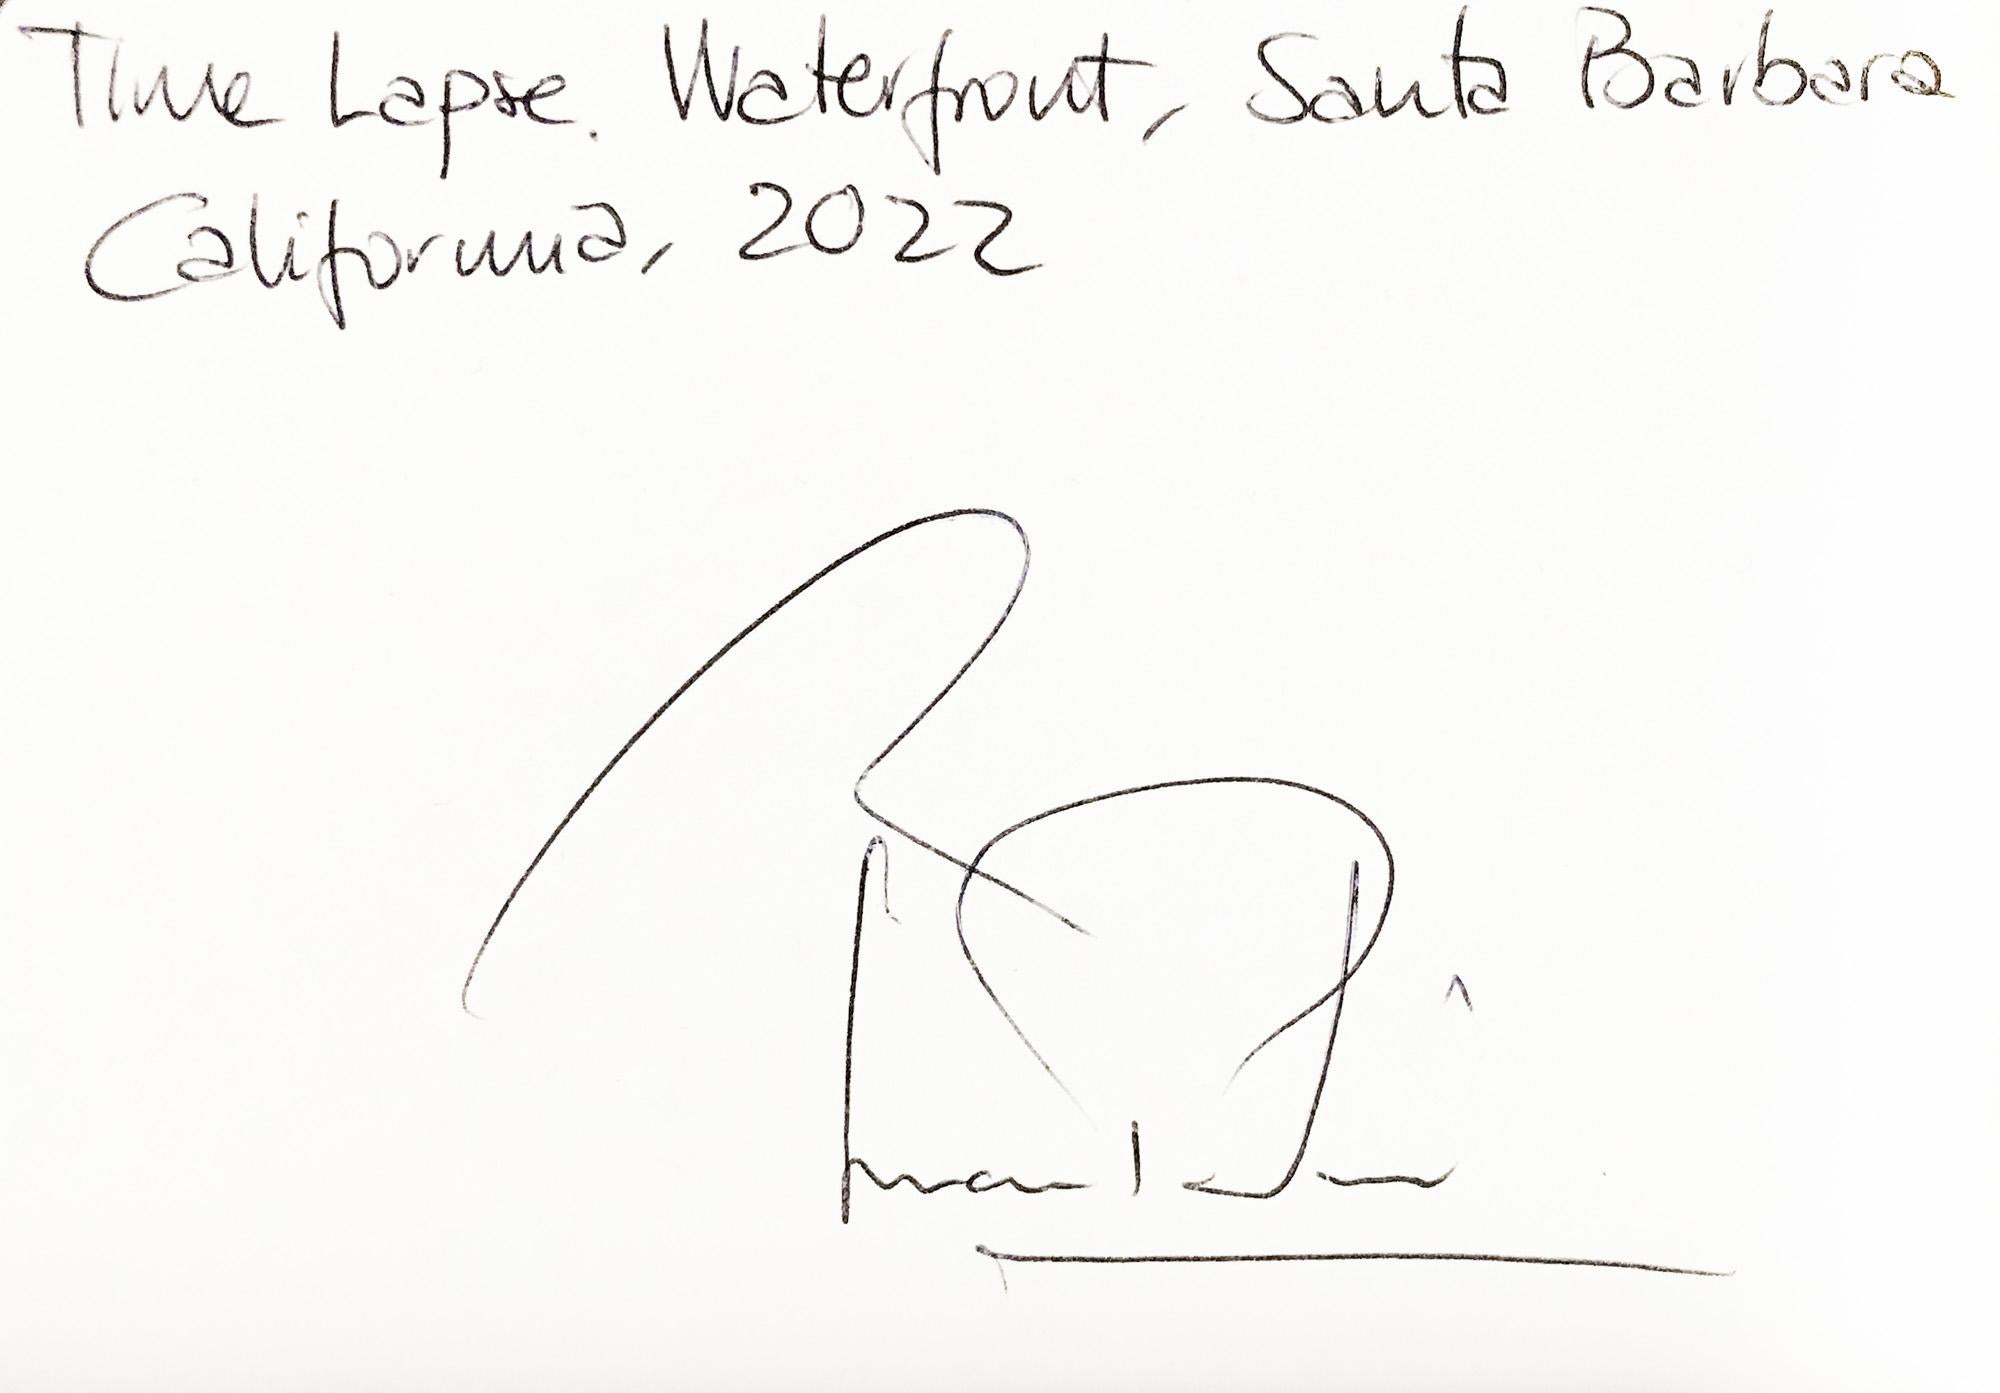 Time Lapse. Waterfront, Santa Barbara
California, 2022